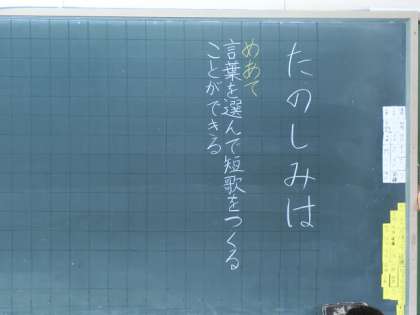 たのしみは
めあて
言葉を選んで短歌をつくる
ことができる